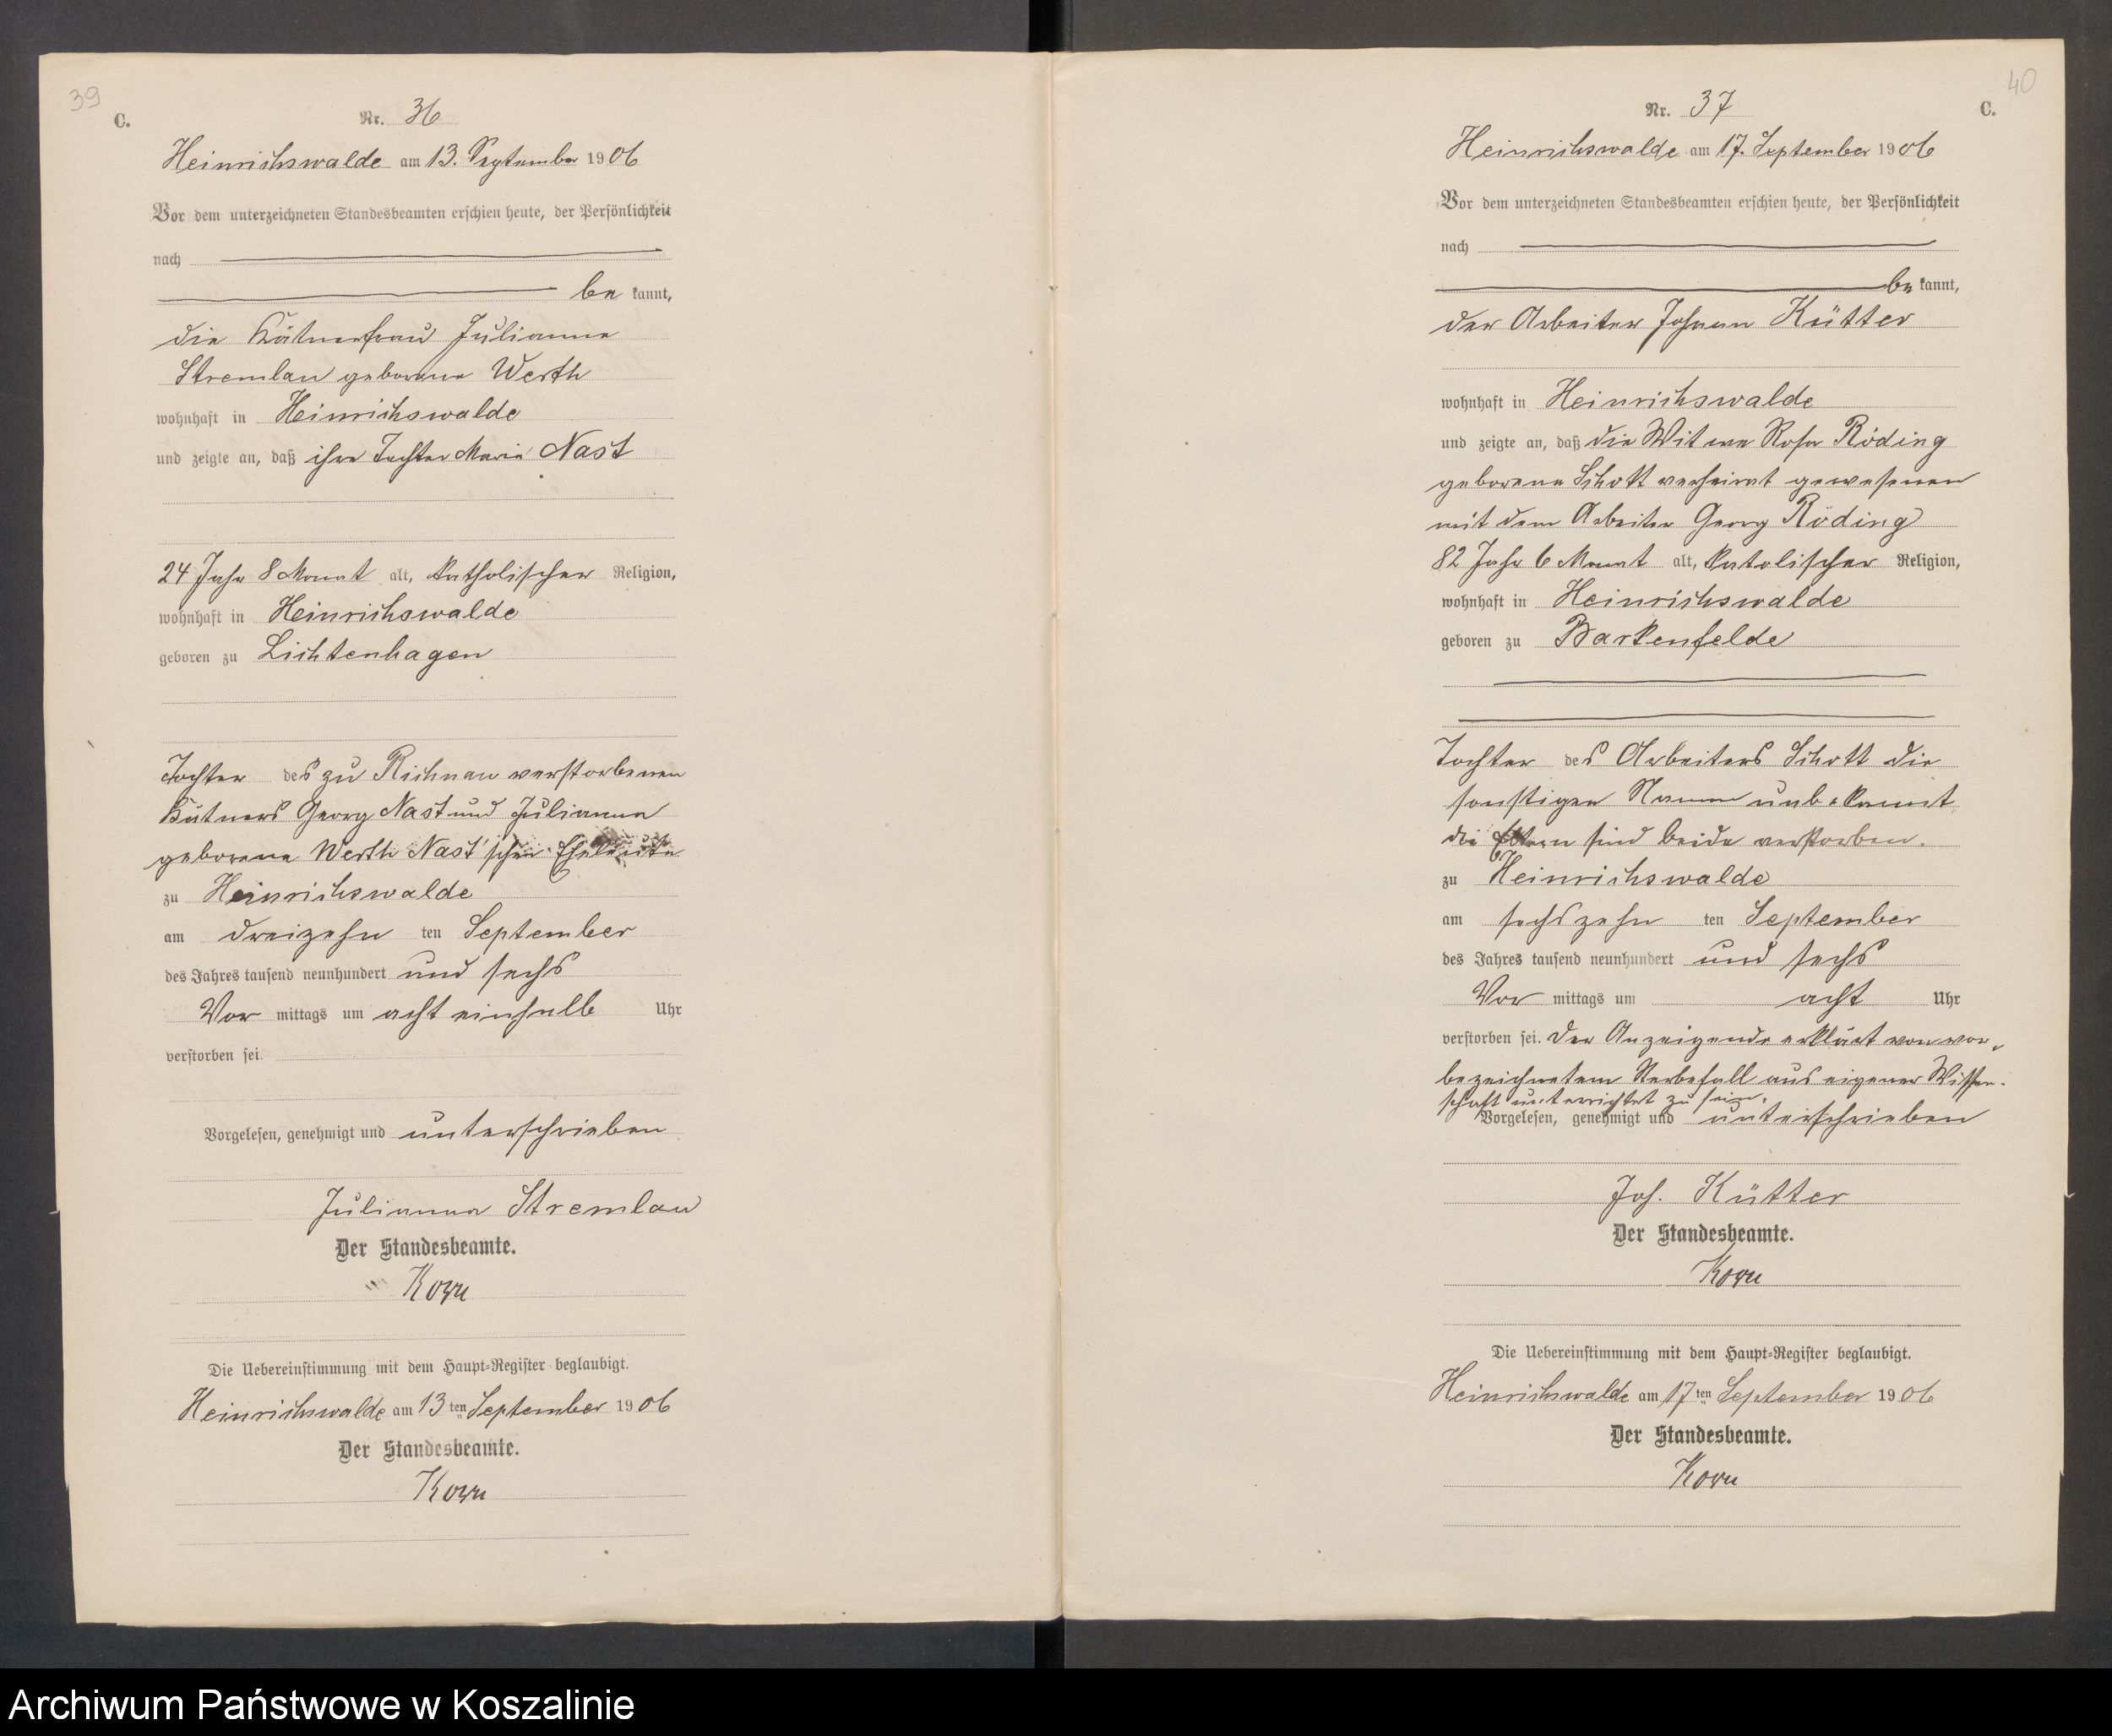 39
C.
Nr. 36
Heinrichswalde am 13. September 1906
Vor dem unterzeichneten Standesbeamten erschien heute, der Persönlichkeit
nach
be kannt,
die Kätnerfrau Julianna
Stremlau geborene Werth
wohnhaft in Heinrichswalde
und zeigte an, daß ihre Tochter Maria Nast
24 Jahr 8 Monat alt, katholischer Religion,
wohnhaft in Heinrichswalde
geboren zu Lichtenhagen
Tochter des zu Richnau verstorbenen
Kätners Georg Nast und Julianna
geborene Werth Nast'schen Eheleute
zu Heinrichswalde
am dreizehn ten September
des Jahres tausend neunhundert und sechs
Vor mittags um acht einhalb Uhr
verstorben sei.
Vorgelesen, genehmigt und unterschrieben
Julianna Stremlau
Der Standesbeamte.
Korn
Die Uebereinstimmung mit dem Haupt-Register beglaubigt.
Heinrichswalde am 13ten September 1906
Der Standesbeamte.
Korn
40
C.
Nr. 37
Heinrichswalde am 17. September 1906
Vor dem unterzeichneten Standesbeamten erschien heute, der Persönlichkeit
nach
be kannt,
der Arbeiter Johann Kütter
wohnhaft in Heinrichswalde
und zeigte an, daß die Witwe Rosa Röding
geborene Schott verheirat gewesenen
mit dem Arbeiter Georg Röding
82 Jahr 6 Monat alt, katolischer Religion,
wohnhaft in Heinrichswalde
geboren zu Barkenfelde
Tochter des Arbeiters Schott die
sonstigen Namen unbekannt
die Eltern sind beide verstorben.
zu Heinrichswalde
am sechszehn ten September
des Jahres tausend neunhundert und sechs
Vor mittags um acht Uhr
verstorben sei. Der Anzeigende erklärt von vor-
bezeichnetem Sterbefall aus eigener Wissen-
schaft unterrichtet zu sein.
Vorgelesen, genehmigt und unterschrieben
Joh. Kütter
Der Standesbeamte.
Korn
Die Uebereinstimmung mit dem Haupt-Register beglaubigt.
Heinrichswalde am 17ten September 1906
Der Standesbeamte.
Korn
Archiwum Państwowe w Koszalinie